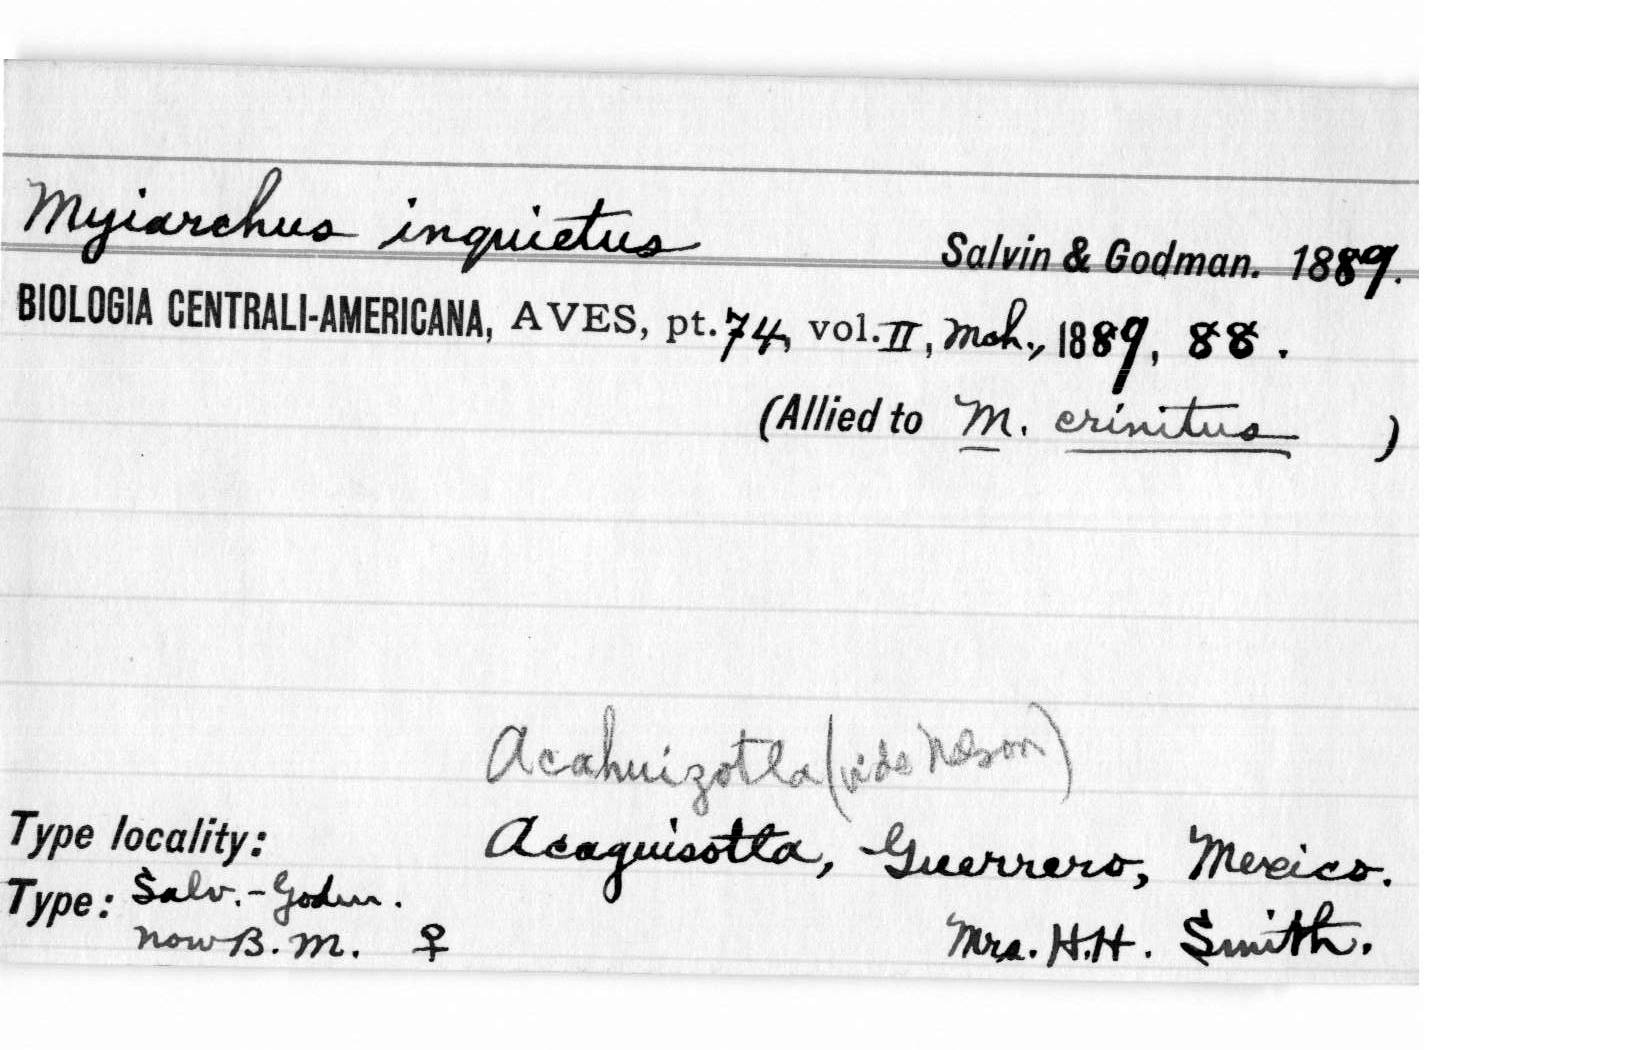 Myiarchus inquietus Salvin & Godman. 1889.
BIOLOGIA CENTRALI-AMERICANA, AVES, pt. 74, vol. II, Mch., 1889, 88.
(Allied to M. crinitus )
Acahuizotla (vide Nelson)
Type locality: Acaguisotla, Guerrero, Mexico.
Type: Salv.-Godm.
now B. M. ♀ Mrs. H.H. Smith.